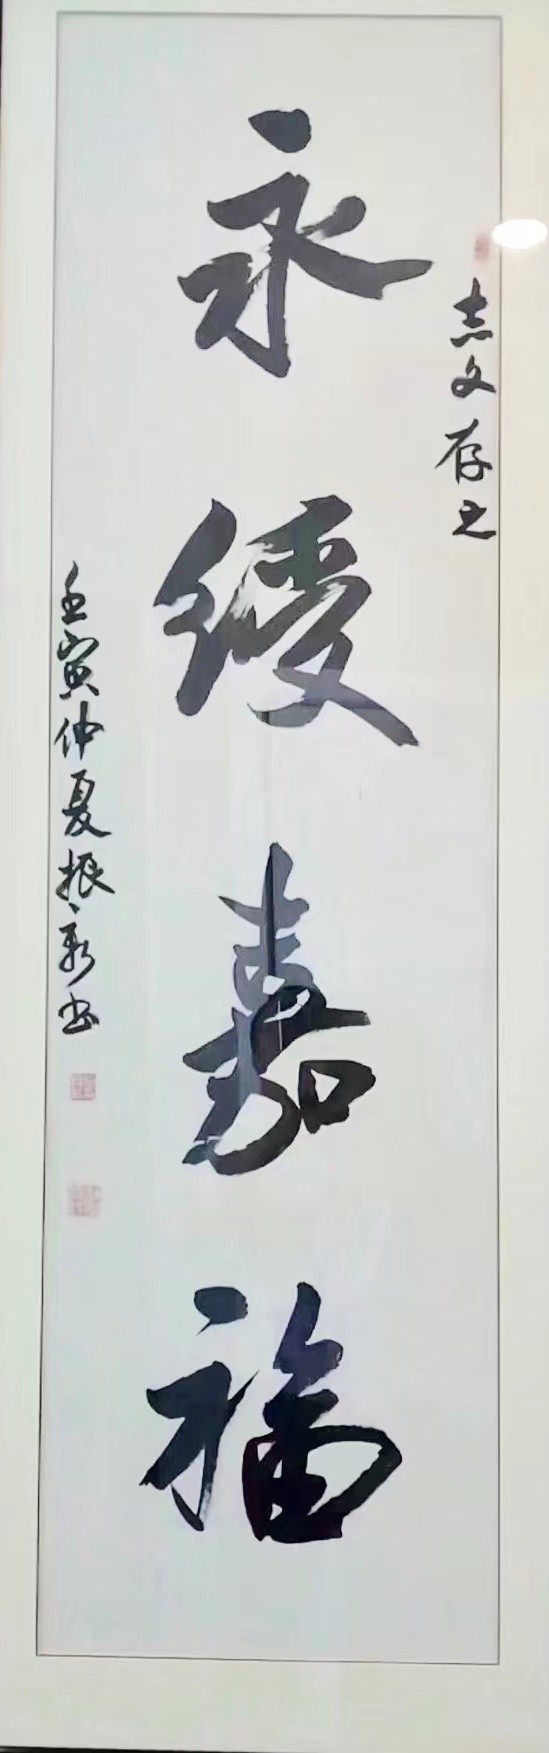 志文存之
永绥嘉福
壬寅仲夏振新书